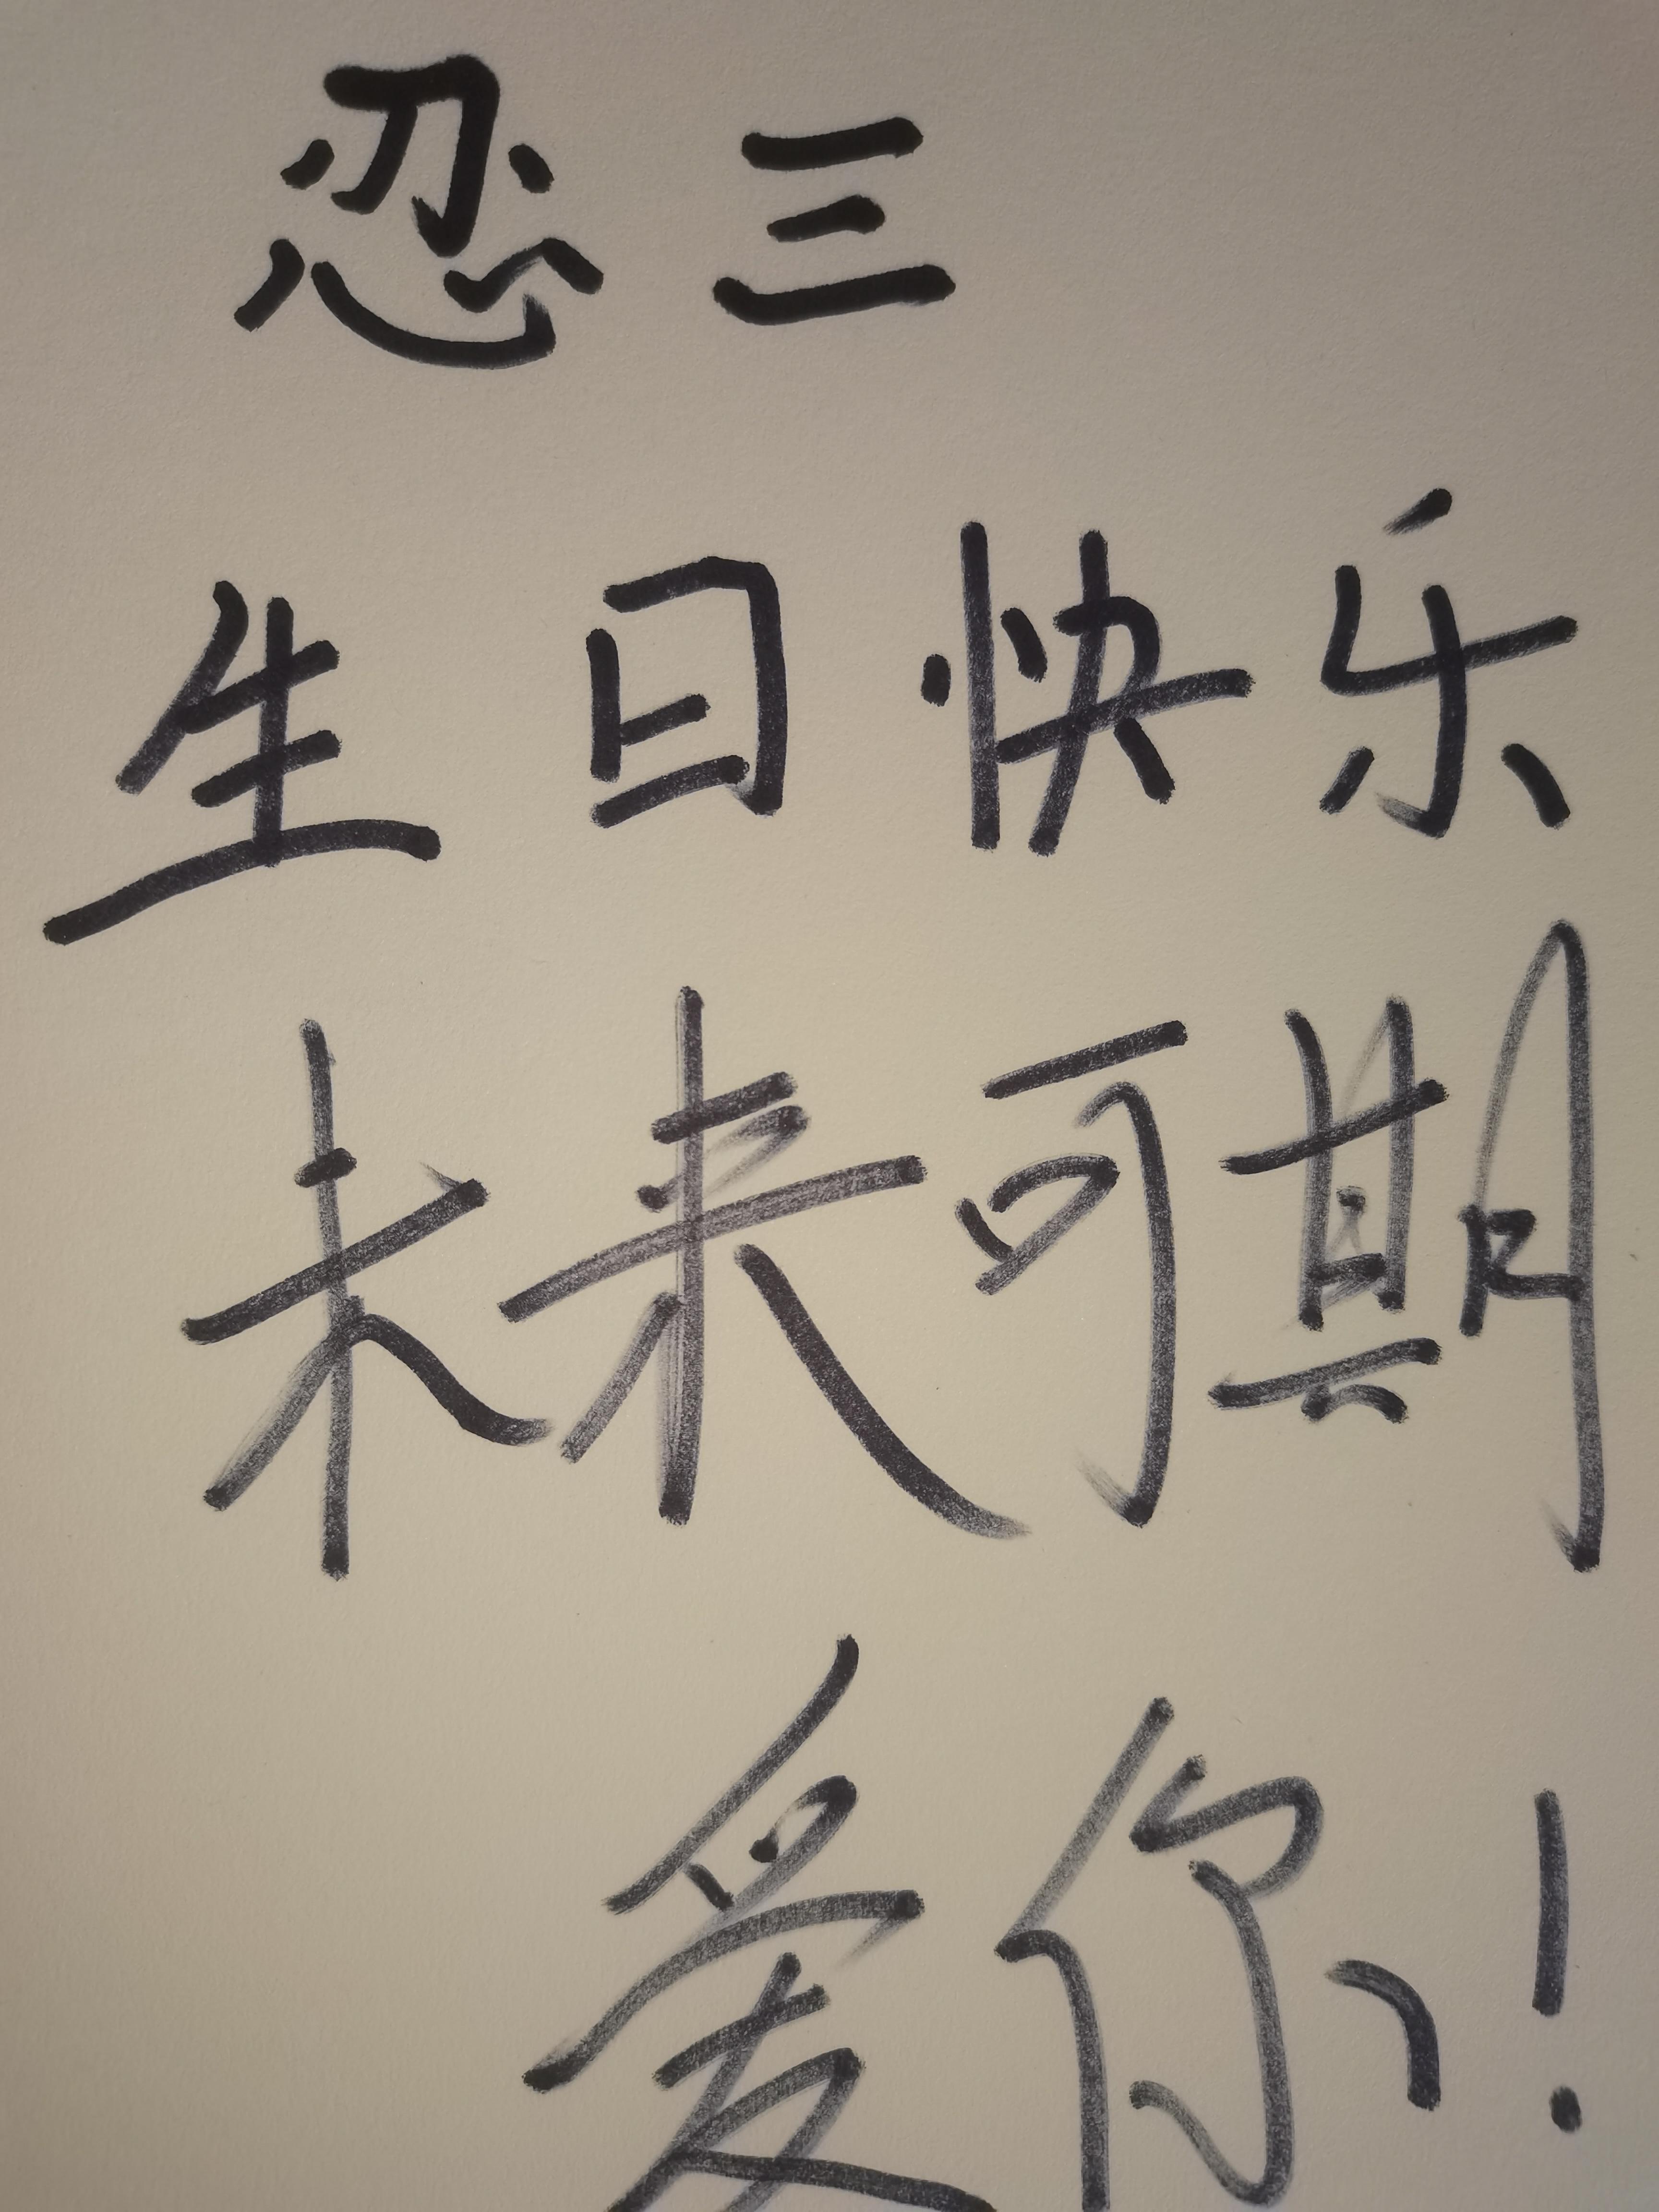 忍三
生日快乐
未来可期
爱你!